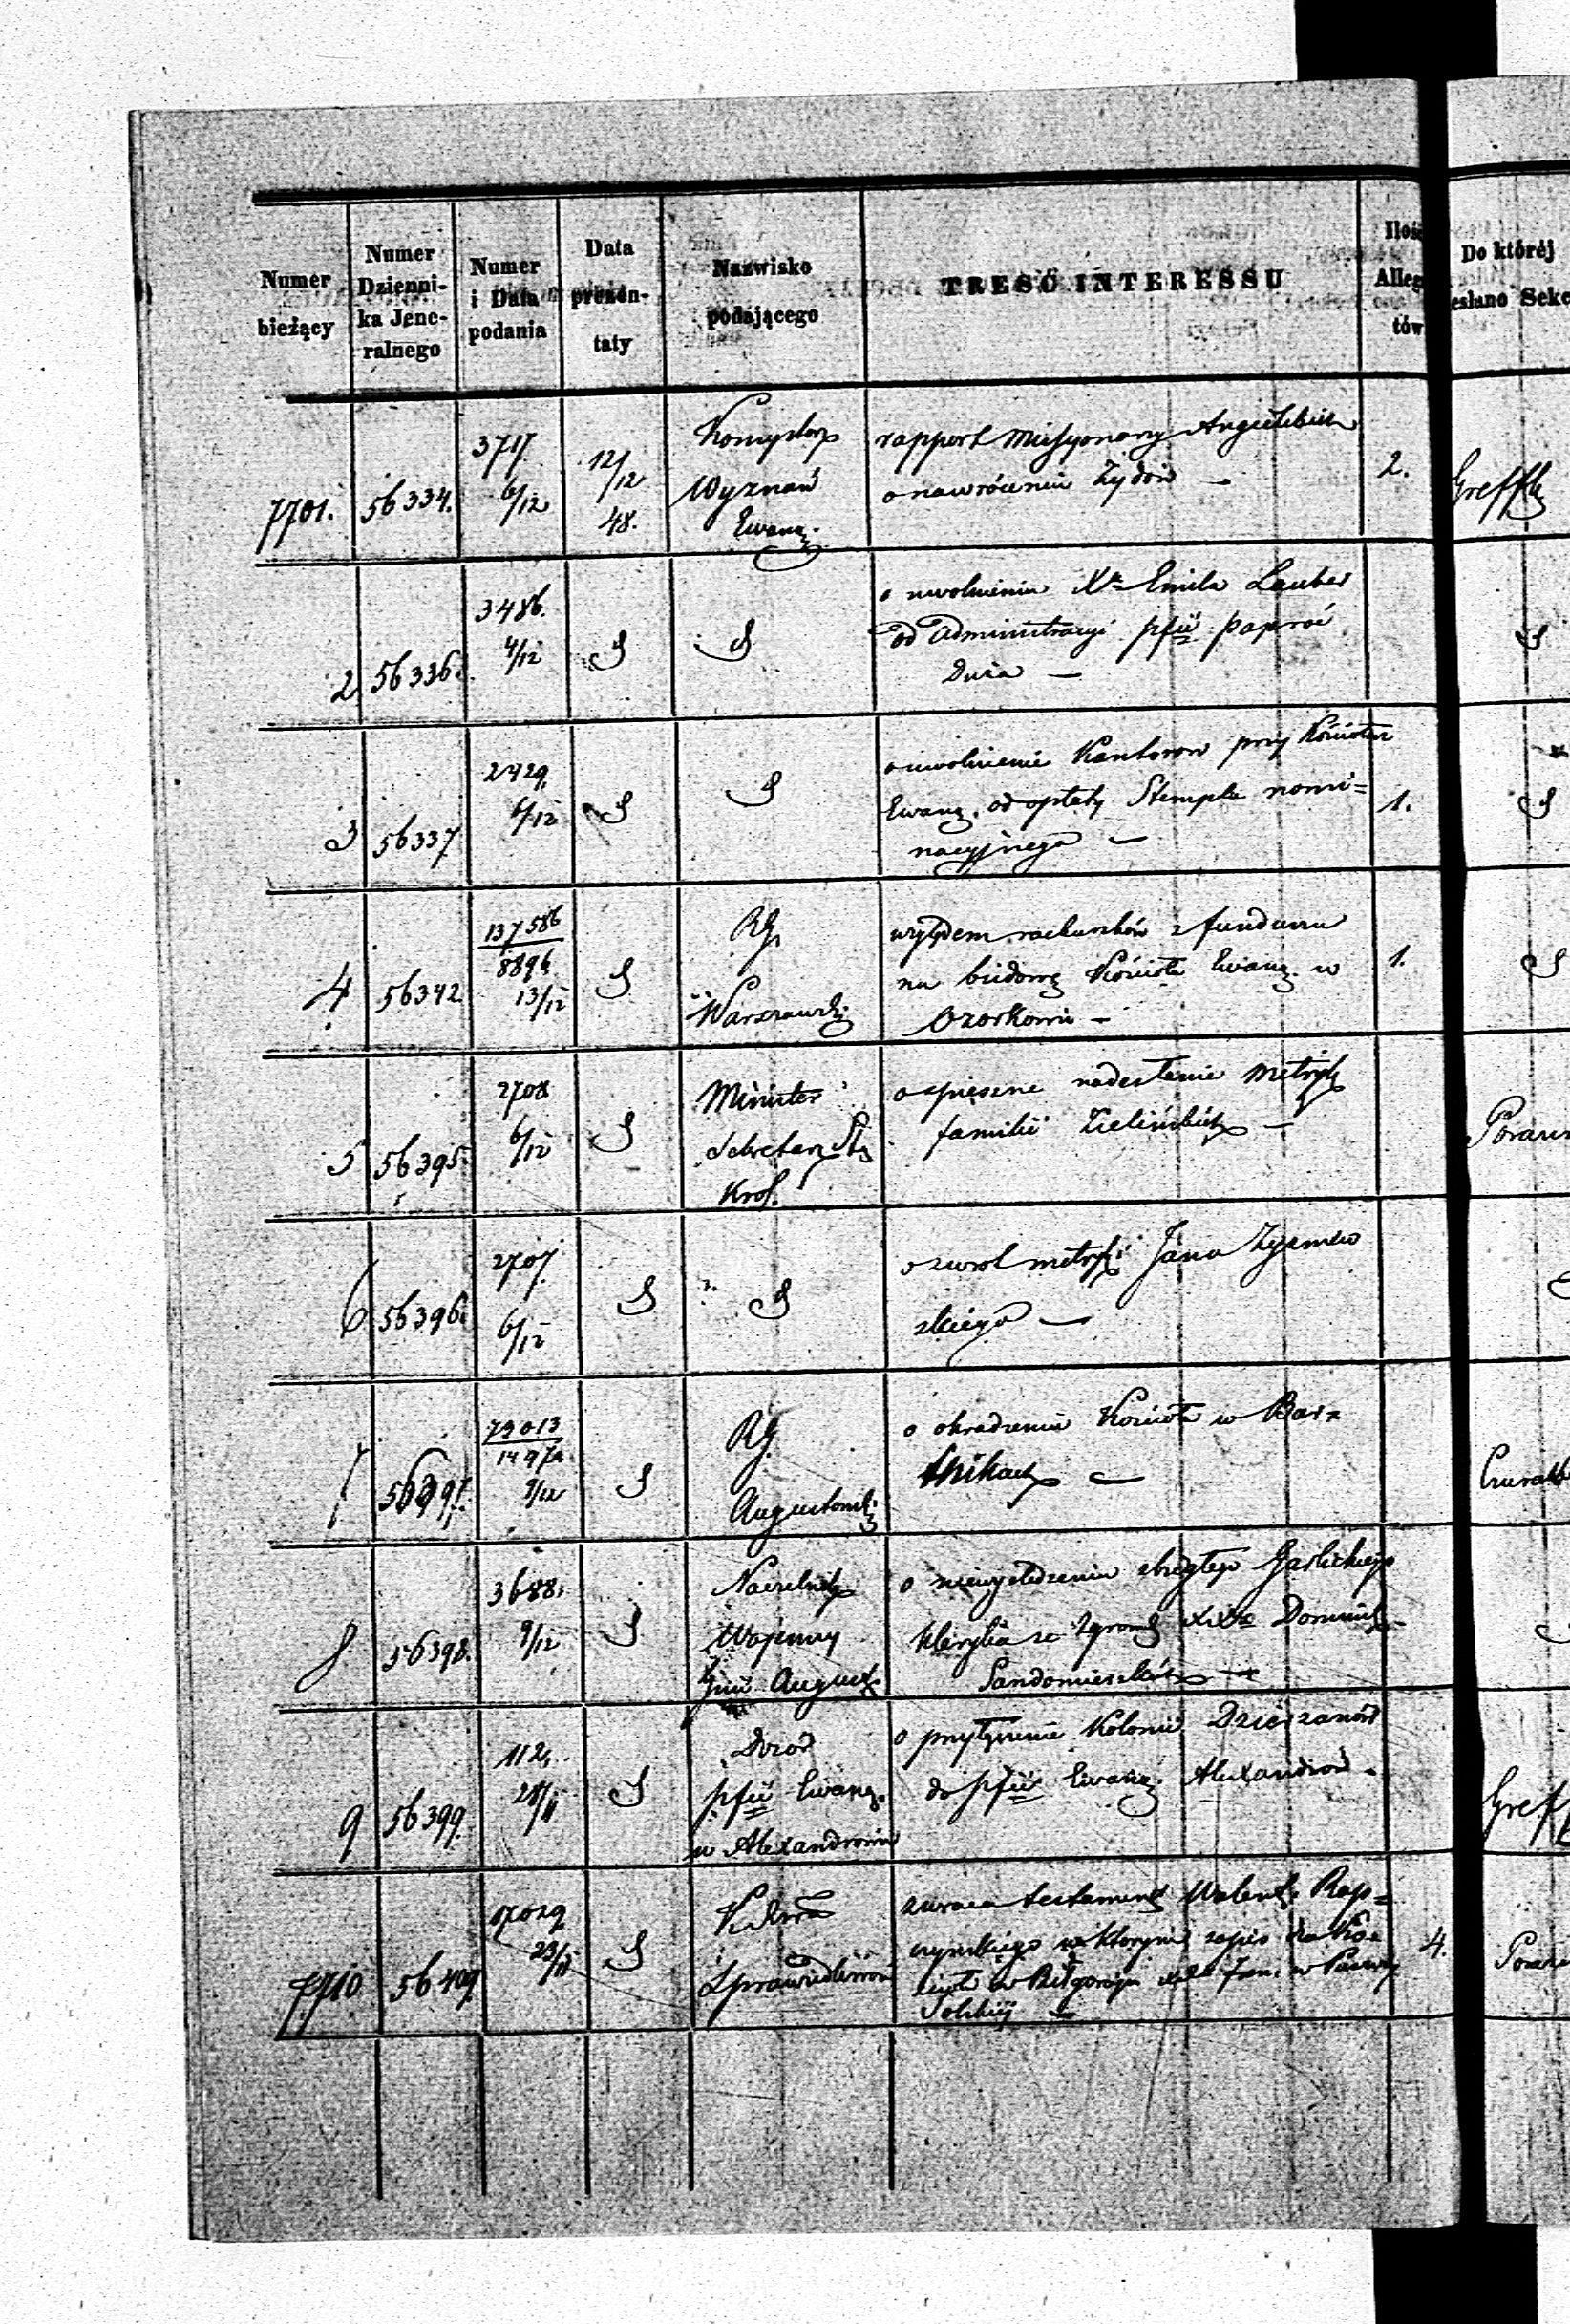 Numer bieżący
Numer Dzienni- ka Jene- ralnego
Numer i Data podania
Data prezen- taty
Nazwisko podającego
TREŚĆ INTERESSU
Ilość Alleg tów
Do której esłano Sekc
7701. 56334. 3717 6/12 12/12 48.
Konsystorz
Wyznań
Ewang.
rapport Missyonarzy Angielskich
o nawróceniu Żydów —
2.
Greffle
2 56336. 3486. 4/12
o uwolnienie Xa Emila Lauber
od Administracyi pfii Paproć
Duża —
3 56337 2429 6/12
o uwolnienie Kantorow przy Kościołac
Ewang. od opłaty Stempla nomi=
nacyjnego —
1.
4 56342 137586 8896 13/12
RG.
Warszawski
względem rachunków z funduszu
na budowę Kościoła Ewang. w
Ozorkowie —
1.
5 56395. 2708 6/12
Minister
Sekretarz St.
Król.
o spieszne nadesłanie metryk
familii Zielińskich —
6 56396. 2707. 6/12
o zwrot metryki Jana
skiego —
7 56397. 79013 9/12
RG.
Augustowski
o okradzeniu Kościoła w
—
8 56398. 3688. 9/12
Naczelnik
Wojenny
Gnii August.
o niewyśledzeniu zbiegłego Garlickiego
kleryka ze Zgrom. XXów Dominik.
Sandomierskich —
9 56399. 112. 28/11
Dozór
pfii Ewang.
w Alexandrowie
o przyłączenie Kolonii Dzierzanów
do pfii Ewang. Alexandrów —
Greff
7710 56409 23/11
Sprawiedliwości
zwraca testament Walent. Rap=
w którym zapis dla Ko=
ścioła w Biłgoraju
Solskiej —
4.